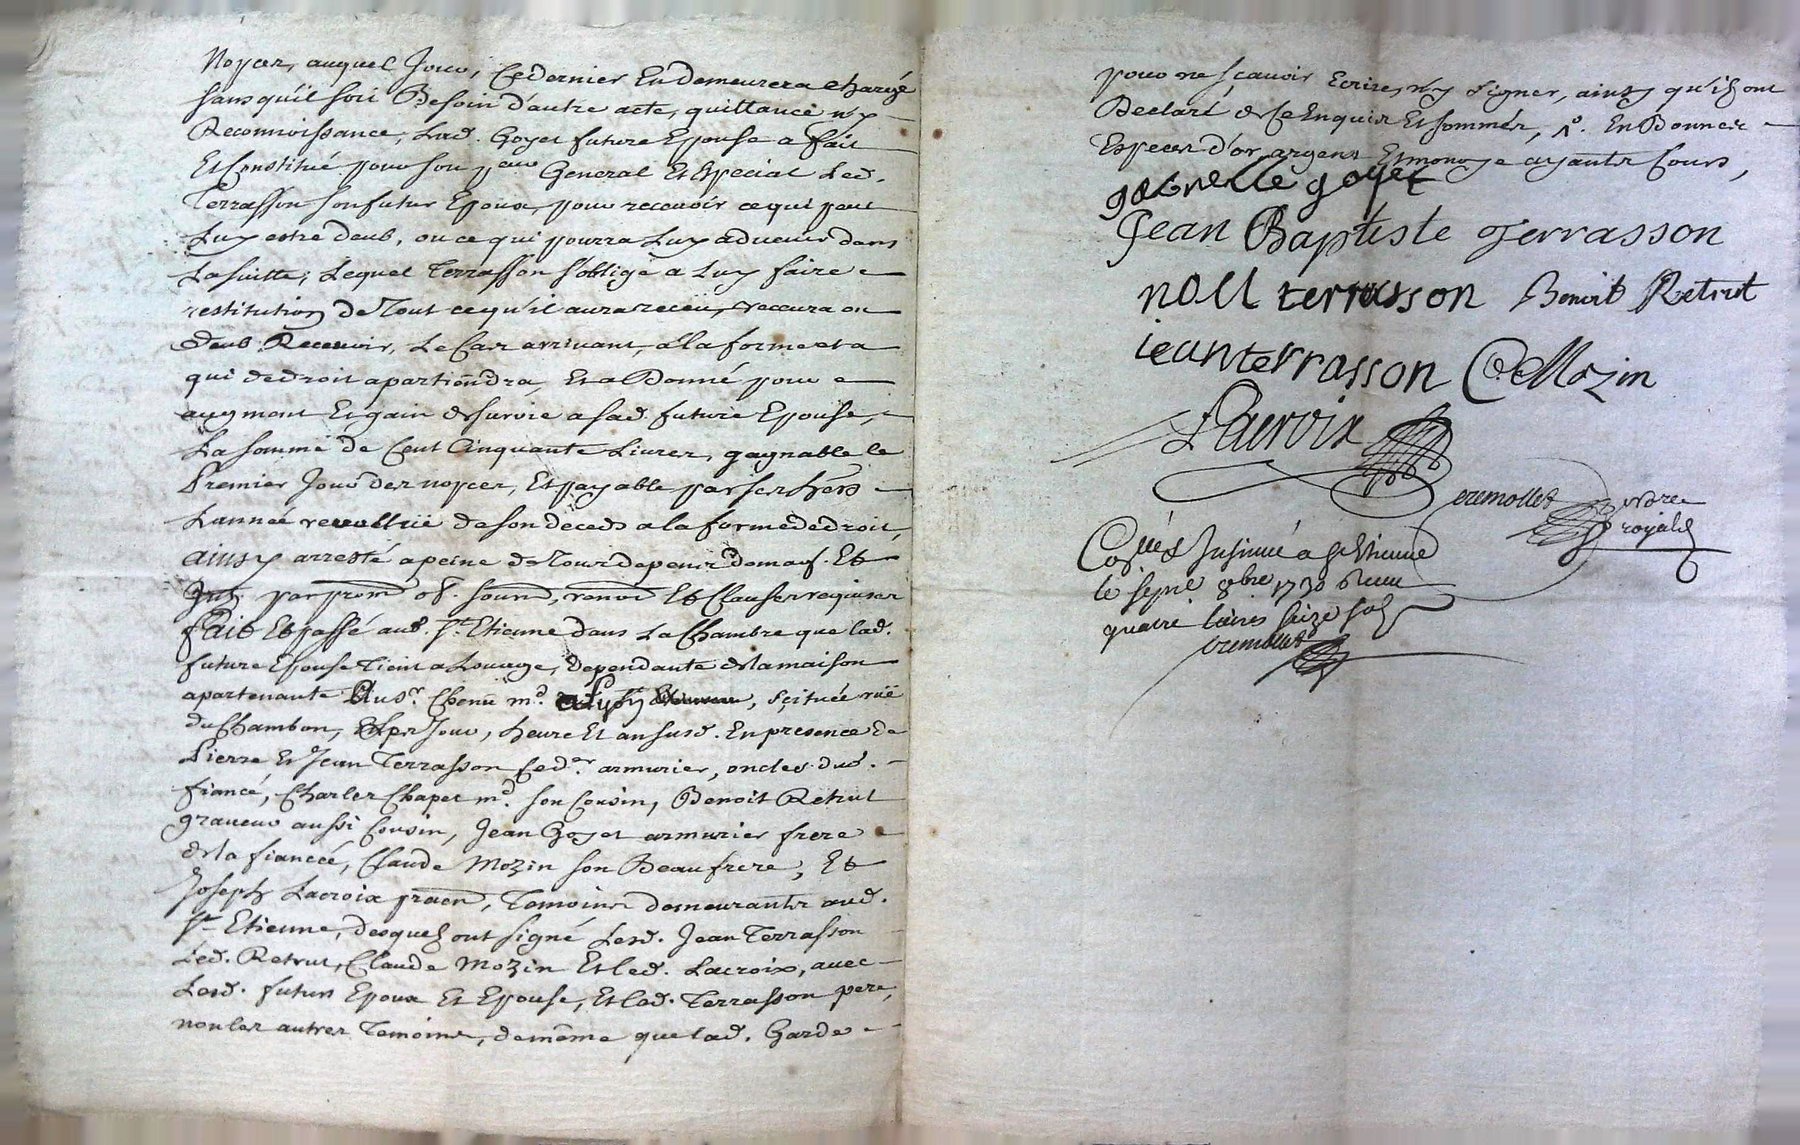 Noces, auquel Jour, Ce dernier En demeurera chargé
sans qu'il soit Besoin d'autre acte, quittance ny
Reconnoissance, Lad. Goyet future Epouse a fait
Et Constitué pour son General Et Special Led.
Terrasson son futur Epoux, pour recevoir ce qui peut
Luy estre deub, ou ce qui pourra Luy advenir dans
La suitte; Lequel Terrasson s'oblige a Luy faire
restitution de Tout ce qu'il aura receu, recevra ou
deub Recevoir, Le Cas arrivant, a la forme et a
qui de droit apartiendra, Et a Donné pour
augment Et gain de survie a sad. future Epouse,
La somme de Cent Cinquante Livres, gagnable le
Premier Jour des noces, Et payable par ses hers
L'année revolluë de son deceds a la forme de droit,
ainsy arresté a peine de Tous depens domag. Et
Jnts. par prom. of. soum., renon. Et Clauses requises
fait Et passé aud. St. Etienne dans La Chambre que lad.
future Epouse Tient a Louage, dependante de la maison
apartenante Au sr. Chenu md. a Lyon, scituée ruë
du Chambon, Les Jour, heure Et an susd. En presence de
Pierre Et Jean Terrasson armurier, oncles dud.
fiancé, Charles Chapet md. son Cousin, Benoit Retrut
graveur aussi Cousin, Jean Goyet armurier frere
de la fiancée, Claude Mozin son Beaufrere, Et
Joseph Lacroix praen, Temoins demeurants aud.
St. Etienne, desquels ont signé Lesd. Jean Terrasson
Led. Retrut, Claude Mozin Et led. Lacroix, avec
Lesd. futurs Epoux Et Epouse, Et led. Terrasson pere,
non les autres Temoins, de même que lad. Garde
pour ne sçavoir Ecrire, ny signer, ainsy qu'ils ont
Declaré de ce Enquis Et sommés, En Bonnes
Especes d'or argent Et monoye ayants Cours,
gabrielle goyet
Jean Baptiste Terrasson
noel terrasson Benoit Retrut
ieanterrasson C Mozin
Lacroix
cremollet nore
royal
Coés Insinué a St Etienne
le sept 8bre 1730 Reçu
quatre livres seize sols
cremollet